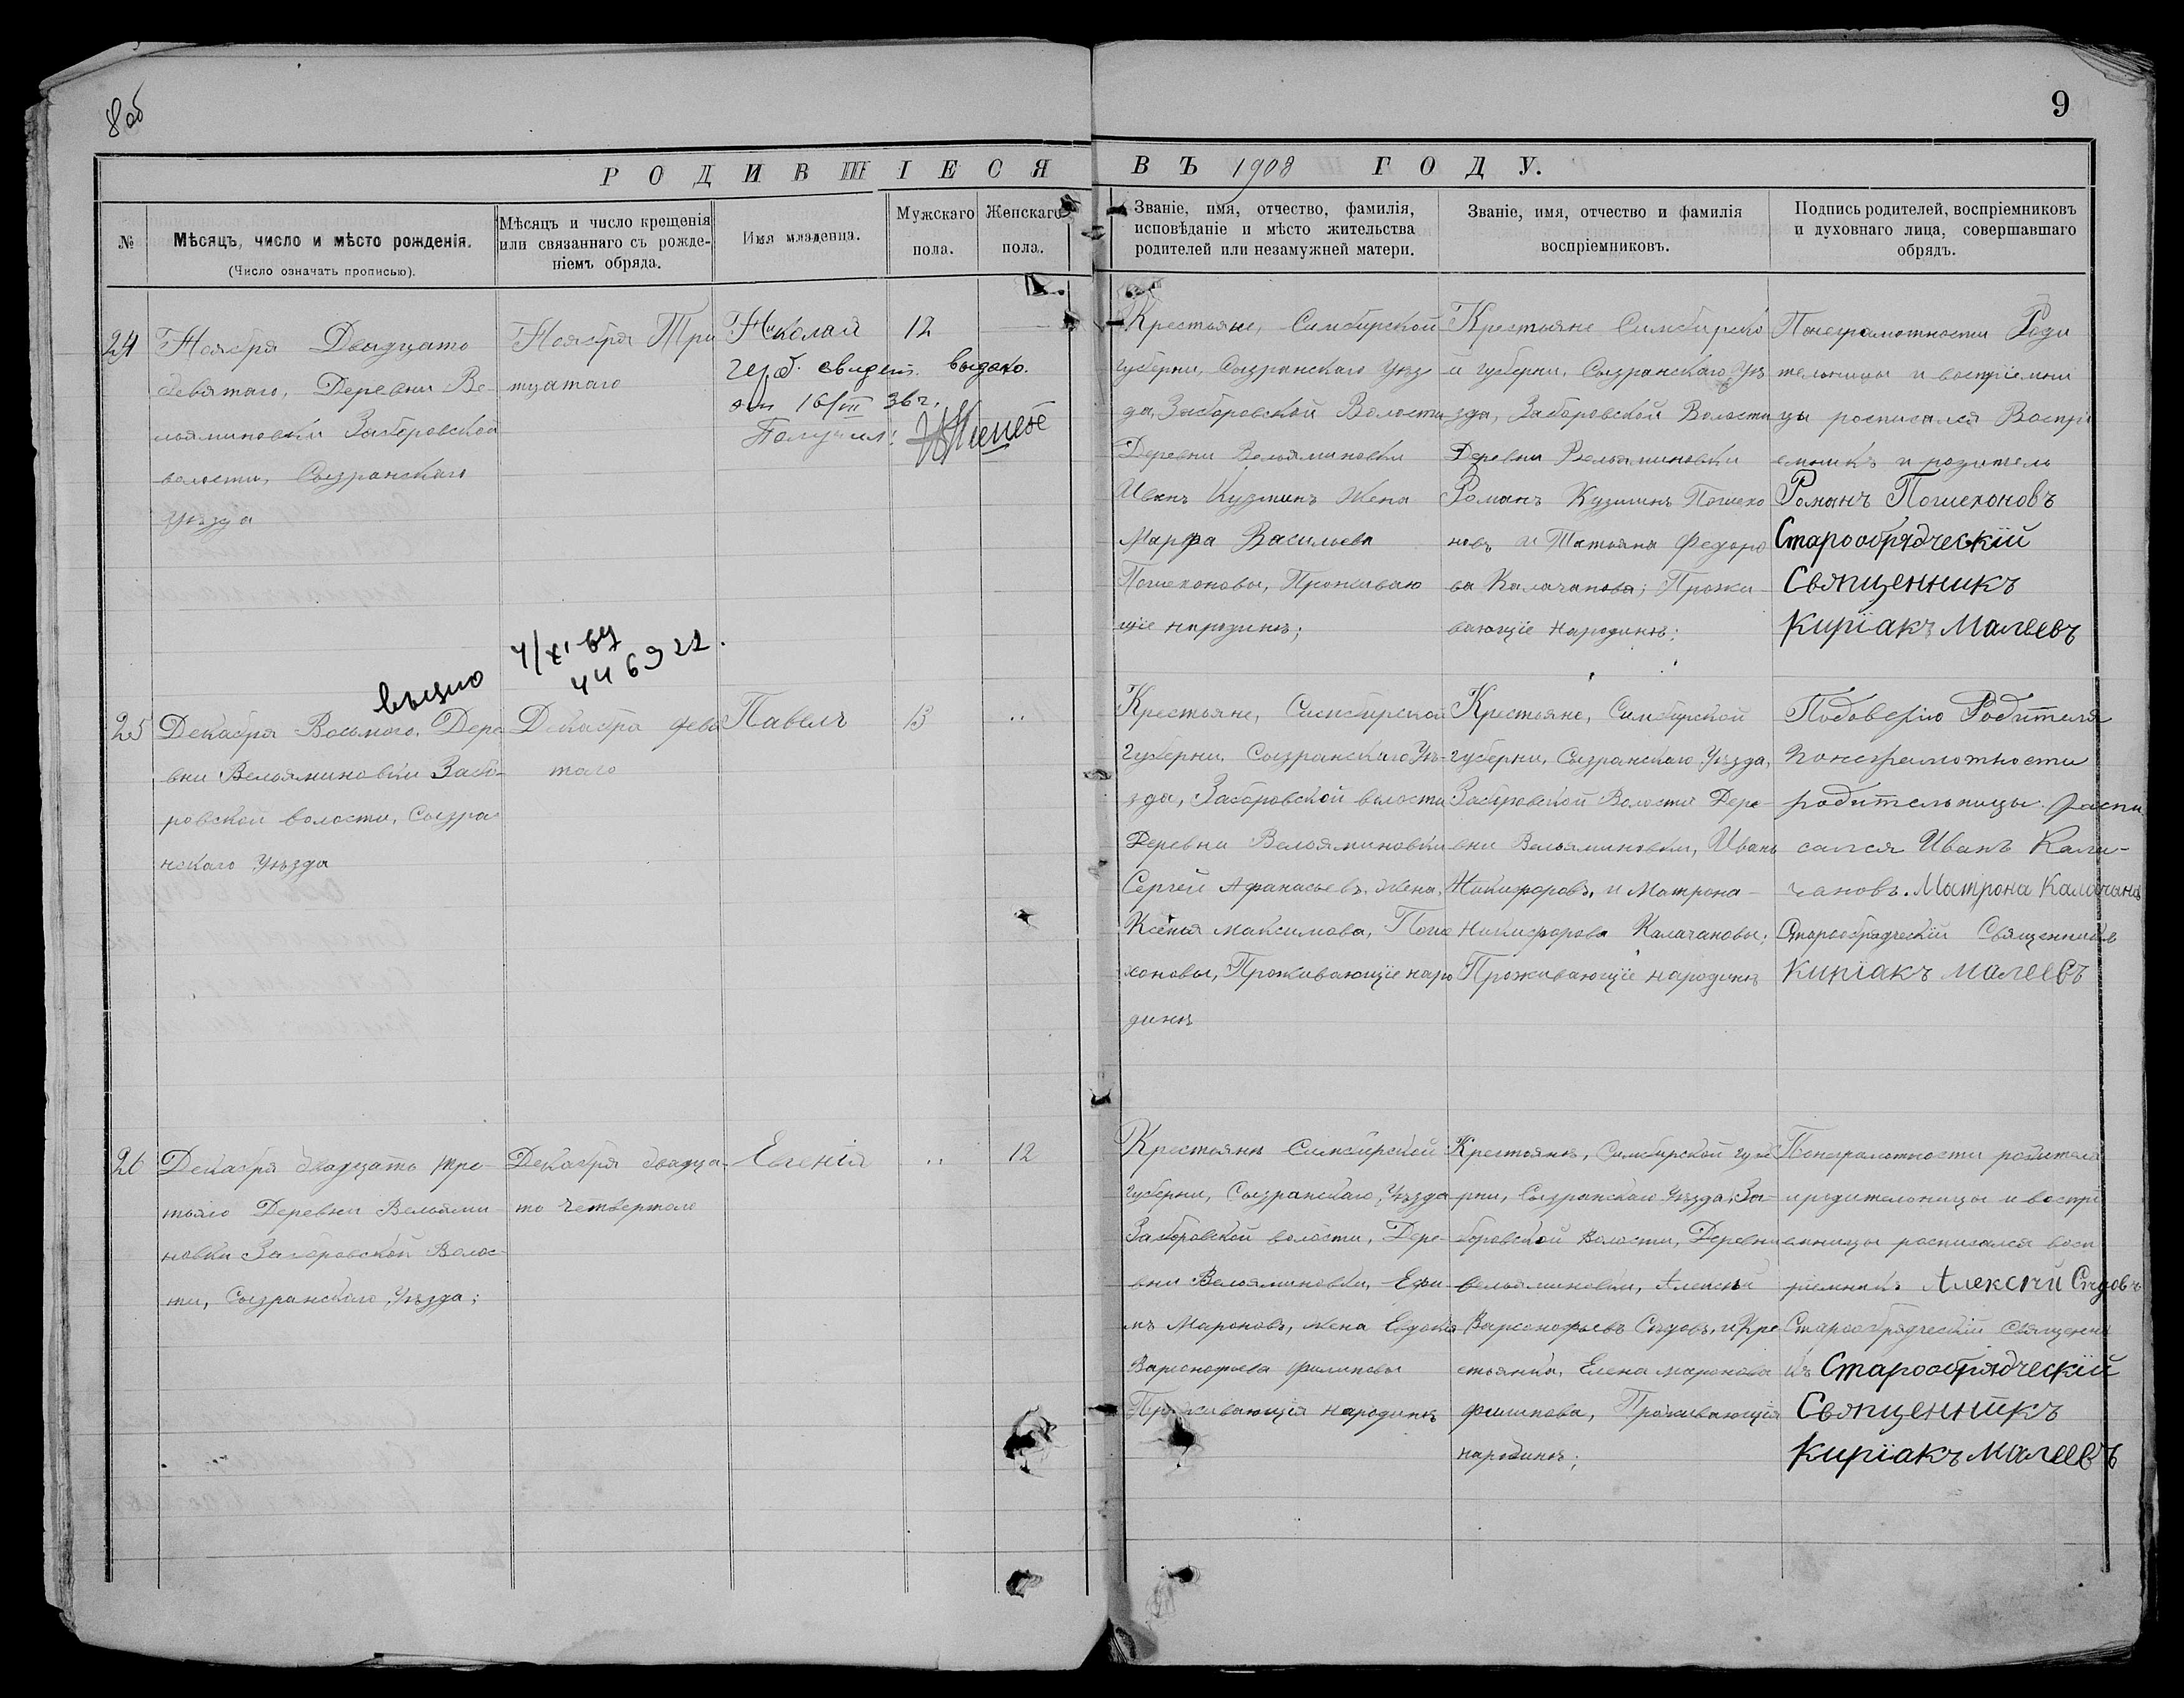 8 об
9
РОДИВШІЕСЯ ВЪ 1908 ГОДУ.
№
Мѣсяцъ, число и мѣсто рожденія.
(Число означать прописью).
Мѣсяцъ и число крещенія
или связаннаго съ рожде-
ніемъ обряда.
Имя младенца.
Мужскаго
пола.
Женскаго
пола.
Званіе, имя, отчество, фамилія,
исповѣданіе и мѣсто жительства
родителей или незамужней матери.
Званіе, имя, отчество и фамилія
воспріемниковъ.
Подпись родителей, воспріемниковъ
и духовнаго лица, совершавшаго
обрядъ.
24
Ноября Двадцато
девятаго, Деревни Ве-
льяминовки Заборовской
волости, Сызранскаго
Уѣзда
Ноября Три
тцатаго
Николай
12
свидет. выдано.
16/III 36 г.
Получил:
Крестьяне, Симбирской
губерни, Сызранскаго Уѣз
да, Заборовской Волости
Деревни Вельяминовки
Иванъ Кузминъ Жена
Марфа Васильева
Пошехоновы, Проживаю
щіе народинѣ;
Крестьяне Симбирско
й губерни, Сызранскаго Уѣ
зда, Заборовской Волости
Деревни Вельяминовки
Романъ Кузминъ Пошехо
новъ и Татьяна Федоро
ва Калачанова; Прожи-
вающіе народинѣ;
Понеграмотности Роди
тельницы и воспріемни
цы росписался Воспрі
емникъ и родитель
Романъ Пошехоновъ
Старообрядческій
Священникъ
Киріакъ Малеевъ
4/XI
446922.
25
Декабря Восьмого, Дере
вни Вельяминовки Забо-
ровской волости, Сызра
нскаго Уѣзда
Декабря девя
таго
Павелъ
13
"
Крестьяне, Симбирской
губерни, Сызранскаго Уѣ-
зда, Заборовской волости
Деревни Вельяминовки
Сергей Афанасьевъ, жена,
Ксенья Максимова, Поше
хоновы, Проживающіе наро
динѣ
Крестьяне, Симбирской
губерни, Сызранскаго Уѣзда,
Заборовской Волости Дере-
вни Вельяминовки, Иванъ
Никифоровъ, и Матрона-
Никифорова Калачановы;
Проживающіе народинѣ
Подоверію Родителя
понеграмотности
родительницы распи
сался Иванъ Кала-
чановъ. Матрона Калачана
Старообрядческій Священникъ
Киріакъ Малеевъ
26
Декабря двадцать тре-
тьяго Деревни Вельями-
новки Заборовской Волос-
ти, Сызранскаго Уѣзда;
Декабря двадца-
то Четвертаго
Евгенія
"
12
Крестьянѣ Симбирской
губерни, Сызранскаго, Уѣзда
Заборовской волости, Дере-
вни Вельяминовки, Ефи-
мъ Мароновъ, жена Евдокія
Варсонофьева филиповы
Проживающія народинѣ
Крестьянѣ, Симбирской губе
рни, Сызранскаго Уѣзда, За-
боровской Волости, Деревни
вельяминовки, Алексѣй
Варсонофьевъ Сѣдовъ, и Кре-
стьянка, Елена Маронова
филипова, Проживающія
народинѣ;
Понеграмотности родителя
иродительницы и воспрі
емницы росписался восп
ріемникъ Алексѣй Сѣдовъ
Старообрядческій Священни
къ Старообрядческій
Священникъ
Киріакъ Малеевъ